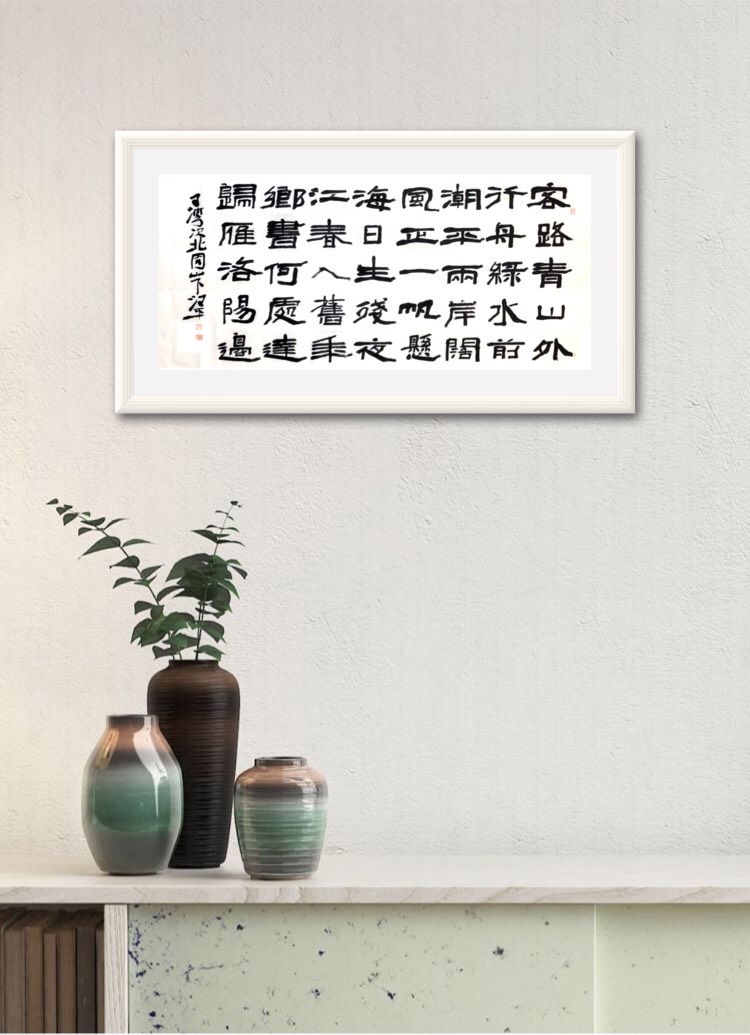 客路青山外
行舟綠水前
潮平兩岸闊
風正一帆懸
海日生殘夜
江春入舊年
鄉書何處達
歸雁洛陽邊
王灣次北固山下